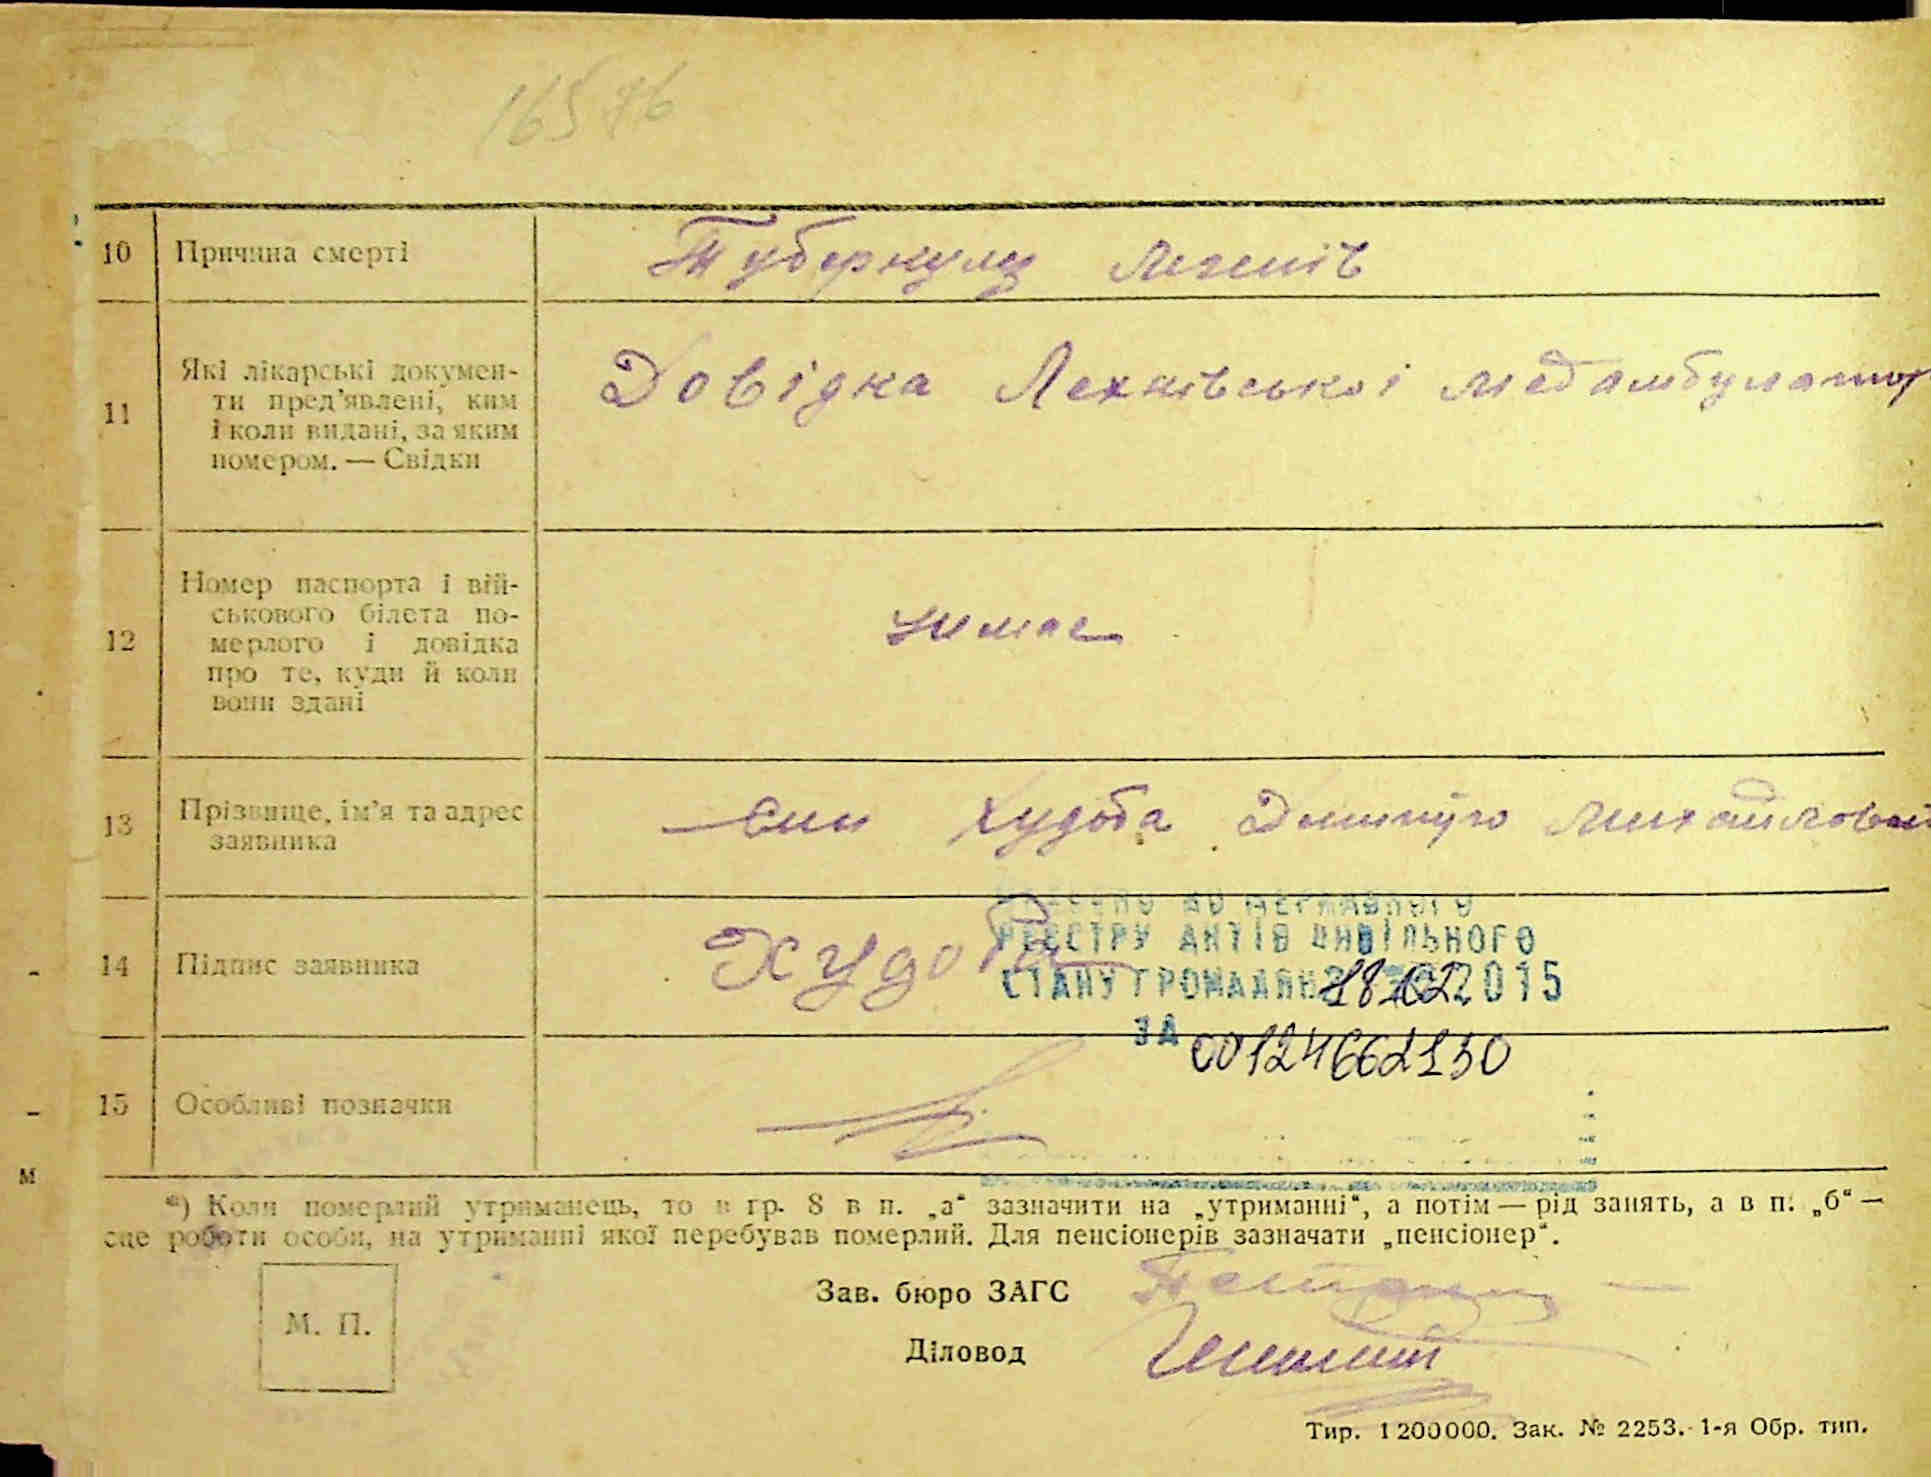 16576
10 Причина смерті Туберкульз легенів
11 Які лікарські докумен-
ти пред'явлені, ким
і коли видані, за яким
номером. — Свідки
Довідка Лехнівської медамбулатор
12 Номер паспорта і вій-
ськового білета по-
мерлого і довідка
про те, куди й коли
вони здані
немає
13 Прізвище, ім'я та адрес
заявника
Син Худоба Дмитро Михайлович
14 Підпис заявника Худоба
ВНЕСЕНО ДО ДЕРЖАВНОГО
РЕЄСТРУ АКТІВ ЦИВІЛЬНОГО
СТАНУ ГРОМАДЯН 2015
ЗА 00124662130
15 Особливі позначки
м
*) Коли померлий утриманець, то в гр. 8 в п. „а“ зазначити на „утриманні“, а потім — рід занять, а в п. „б“ —
сце роботи особи, на утриманні якої перебував померлий. Для пенсіонерів зазначати „пенсіонер“.
М. П.
Зав. бюро ЗАГС
Діловод
Тир. 1200000. Зак. № 2253. 1-я Обр. тип.